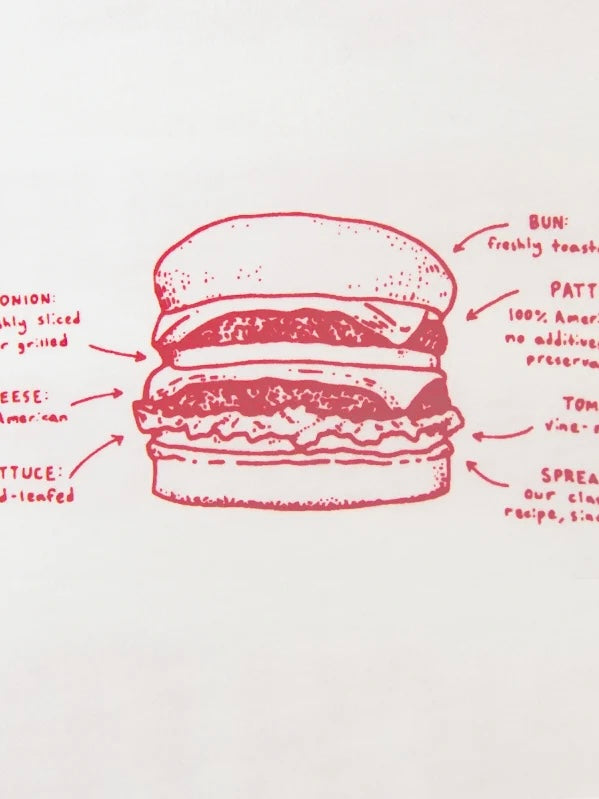 ONION:
hly sliced
r grilled
EESE:
American
TTUCE:
d-leafed
BUN:
freshly toast
PATT
100% Ameri
no additive
preserva
TOM
vine-r
SPREA
our clas
recipe, sinc